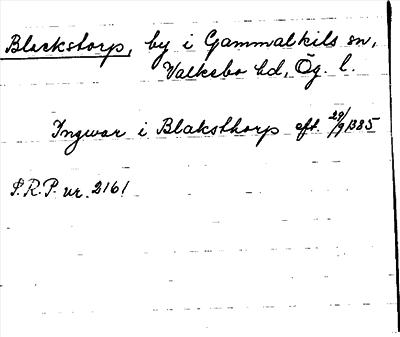 Blackstorp, by i Gammalkils sn,
Valkebo hd, Ög. l.
Ingwar i Blaksthorp aft. 29/9 1385
S.R.P. nr. 2161